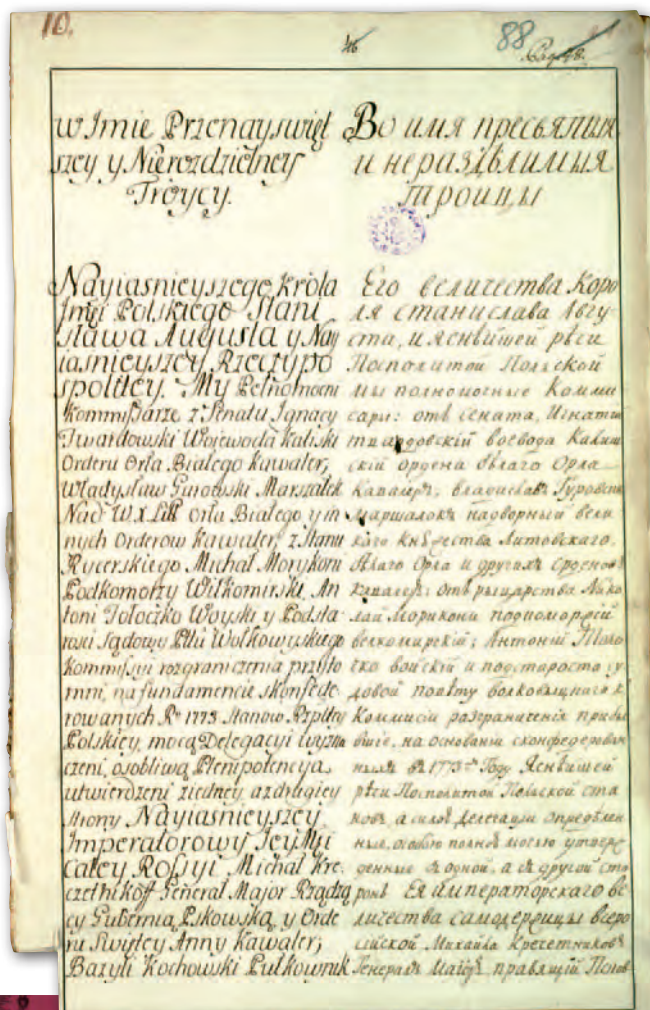 10.
46
88
w Imie Przenayswięt
szey y Nierozdzielney
Troycy.
Во имя пресвятыя
и нераздѣлимыя
троицы
Nayiasnieyszego Krola
Imći Polskiego Stani
sława Augusta y Nay
iasnieyszey Rzeczypo
spolitey. My Pełnomocni
Kommissarze z Senatu Ignacy
Twardowski Woiewoda Kaliski
Orderu Orła Białego Kawaler,
Władysław Gurowski Marszałek
Nad. W. X. Litt. Orła Białego y in
nych Orderow Kawaler, z Stanu
Rycerskiego Michał Morykoni
Podkomorzy Wiłkomirski, An
toni Tołoczko Woyski y Podsta
rosci Sądowy Pttu Wołkowyskiego
Kommissyi rozgraniczenia przyto
mni, na fundamencie skonfede
rowanych Rº 1773. Stanow Rzpltey
Polskiey, mocą Delegacyi wyzna
czeni, osobliwą Plenipotencyą
utwierdzeni ziedney, a zdrugiey
strony Nayiasnieyszey
Imperatorowy Jey Mći
Całey Rossyi Michał Kre
czetnikoff General Major Rządzą
cy Gubernią Pskowską, y Orde
ru Swiętey Anny Kawaler,
Bazyli Kochowski Pułkownik
Его величества Коро
ля станислава Авгу
ста, и яснѣйшей рѣчи
Посполитой Польской
мы полномочные Комми
сары: отъ сената, Игнатій
твардовскій воевода Калиш
скій ордена бѣлаго Орла
Кавалеръ, владиславъ Гуровскій
Маршалокъ надворный вели
каго Княжества Литовскаго.
бѣлаго Орла и другихъ орденовъ
кавалеръ: отъ рыцарства Мика
лай Морикони подкоморый
велкомирскій; Антоній Толо
чко войскій и подстароста су
довой повѣту волковыцкаго к
Коммисіи разграниченія прибы
вшіе, на основаніи сконфедерован
ныхъ въ 1773мъ Году Яснѣйшей
рѣчи Посполитой Польской ста
новъ, а силою делегаціи опредѣлен
ные, особою полной мочью утверж
денные съ одной, а съ другой сто
роны Ея императорскаго ве
личества самодержицы всеро
сійской Михайла Кречетниковъ
Генералъ Маіоръ правлящій Псков